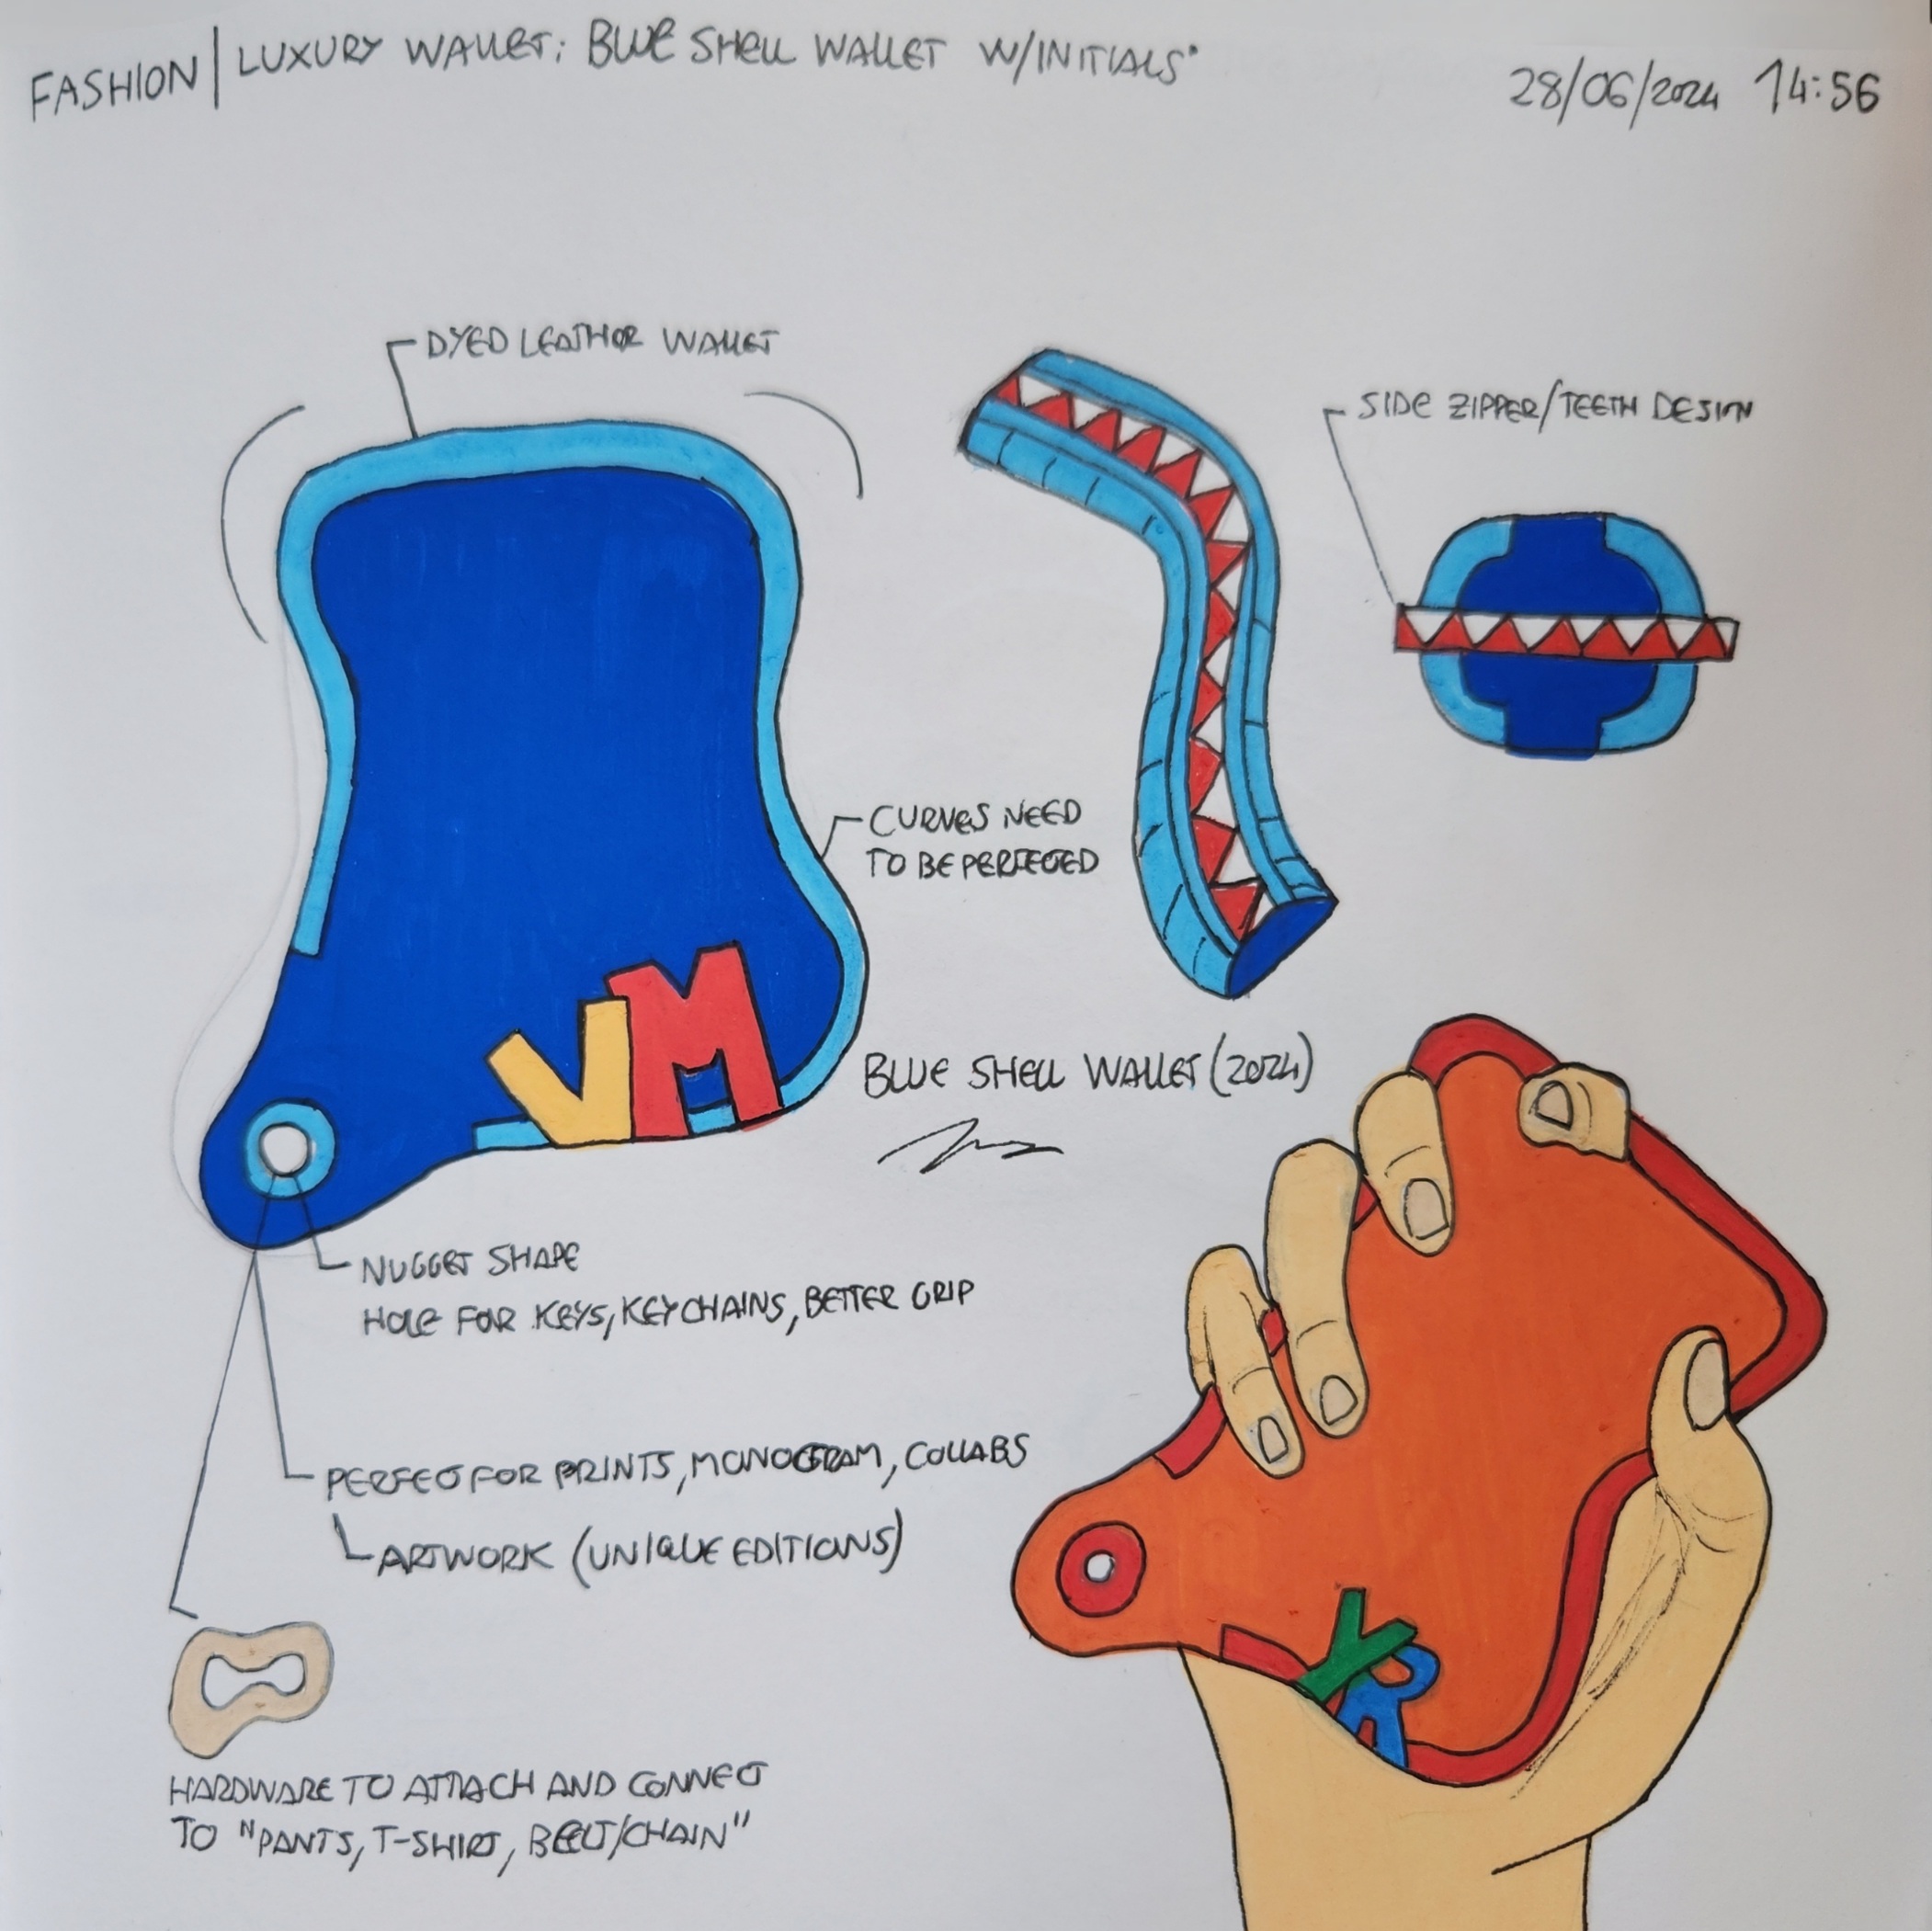 FASHION | LUXURY WALLET: BLUE SHELL WALLET W/INITIALS"
28/06/2024 14:56
DYED LEATHER WALLET
SIDE ZIPPER/TEETH DESIGN
CURVES NEED
TO BE PERFECTED
VM
BLUE SHELL WALLET (2024)
NUGGET SHAPE
HOLE FOR KEYS, KEYCHAINS, BETTER GRIP
PERFECT FOR PRINTS, MONOGRAM, COLLABS
ARTWORK (UNIQUE EDITIONS)
YR
HARDWARE TO ATTACH AND CONNECT
TO "PANTS, T-SHIRT, BELT/CHAIN"